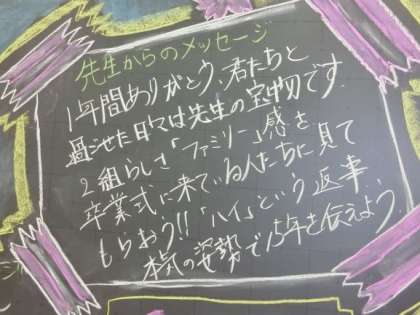 先生からのメッセージ
1年間ありがとう、君たちと
過ごせた日々は先生の宝物です。
2組らしさ「ファミリー」感を
卒業式に来ている人たちに見て
もらおう!!「ハイ」という返事、
本気の姿勢で15年を伝えよう。